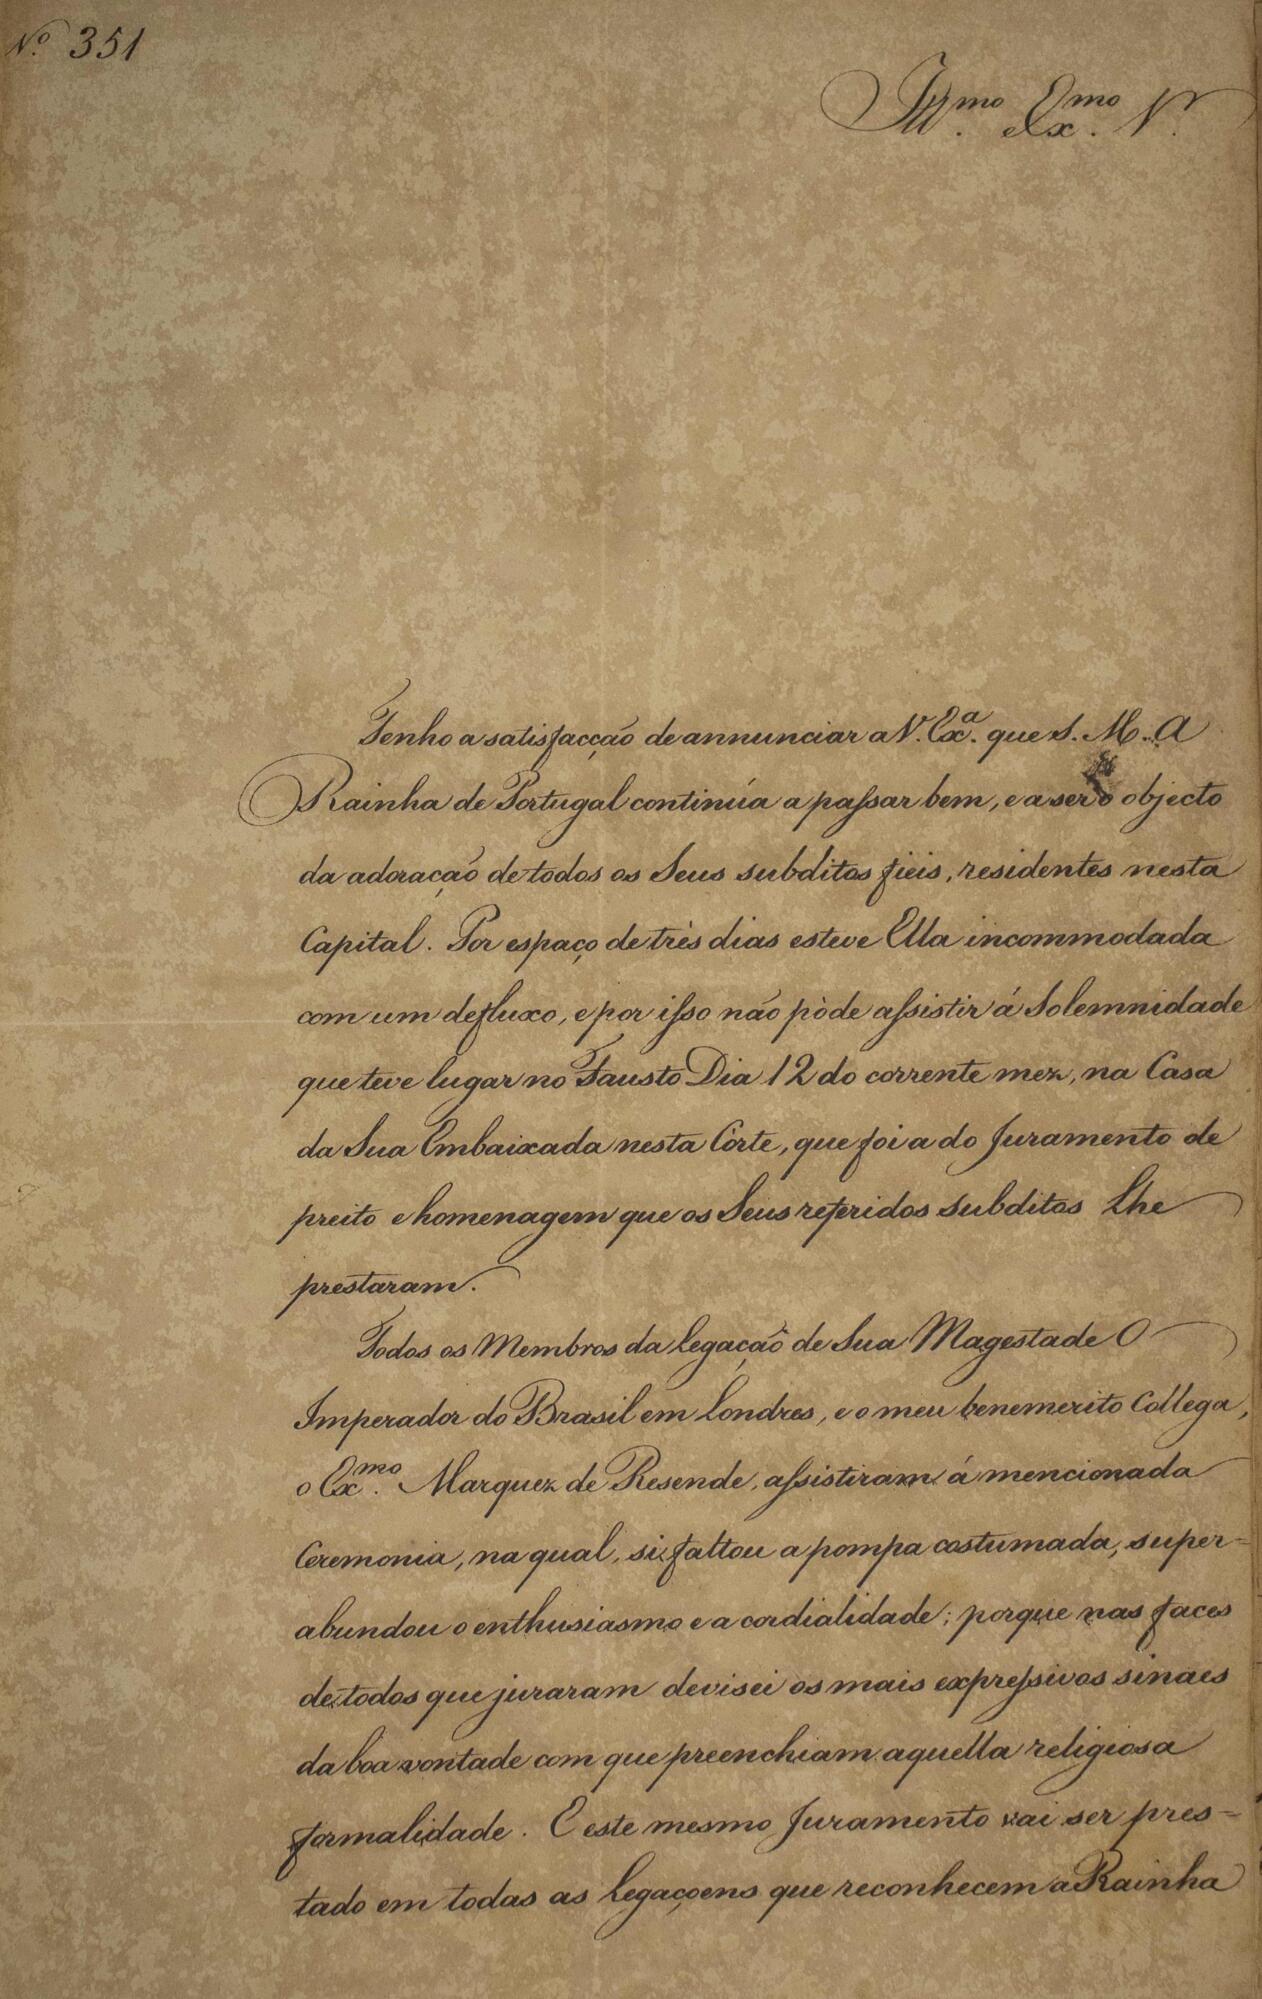 Nº 351
Ill.mo Ex.mo Sr.
Tenho a satisfacção de annunciar a V. Ex.a que S. M. A
Rainha de Portugal continúa a passar bem, e a ser o objecto
da adoração de todos os Seus subditos fieis, residentes nesta
Capital. Por espaço de três dias esteve Ella incommodada
com um defluxo, e por isso não pòde assistir á Solemnidade
que teve lugar no Fausto Dia 12 do corrente mez, na Casa
da Sua Embaixada nesta Côrte, que foi a do Juramento de
preito e homenagem que os Seus referidos subditos Lhe
prestaram.
Todos os Membros da Legação de Sua Magestade O
Imperador do Brasil em Londres, e o meu benemerito Collega,
o Ex.mo Marquez de Resende, assistiram á mencionada
Ceremonia, na qual, si faltou a pompa costumada, super-
abundou o enthusiasmo e a cordialidade; porque nas faces
de todos que juraram devisei os mais expressivos sinaes
da boa vontade com que preenchiam aquella religiosa
formalidade. E este mesmo Juramento vai ser pres-
tado em todas as Legaçoens que reconhecem a Rainha